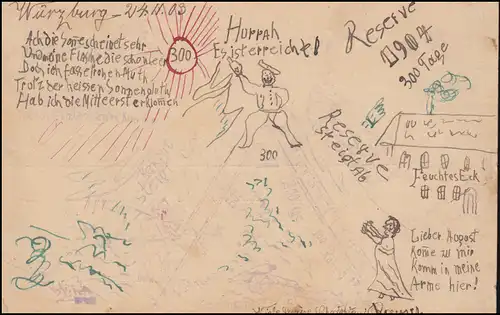 Würzburg - 24.11.03
Ach die sone scheinet sehr
Und meine Flasche die schon leer
Doch ich fasse frohen Muth
Trotz der heissen Sonnengluth
Hab ich die Mitte erst erklomen
300
Hurrah
Es ist erreicht!
300
Reserve
1904
300 Tage
Reserve
steigt Ab
Feuchtes Eck
Lieber August
kome zu mir
komm in meine
Arme hier!